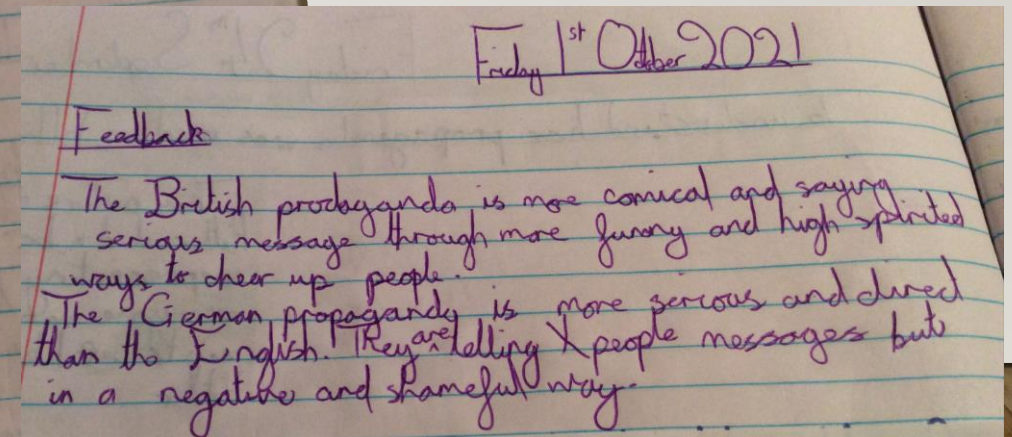 Friday 1st Otober 2021
Feedback
The British prodaganda is more comical and saying
serious message through more funny and high spirited
ways to cheer up people.
The German propaganda is more serious and dired
than the English. They are telling people messages but
in a negative and shameful way.